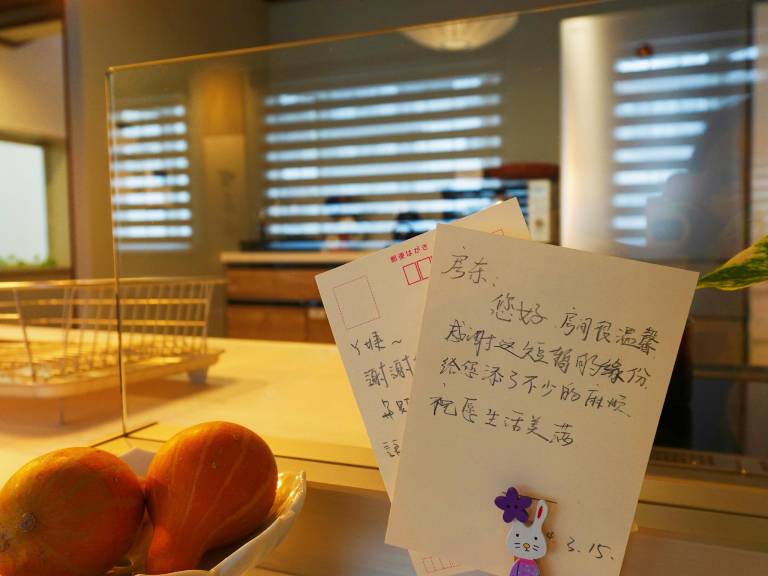 房东、
您好 房间很温馨
感谢这短暂的缘份
给您添了不少的麻烦
祝愿生活美满
3.15.
郵便はがき
Y姨～
謝謝